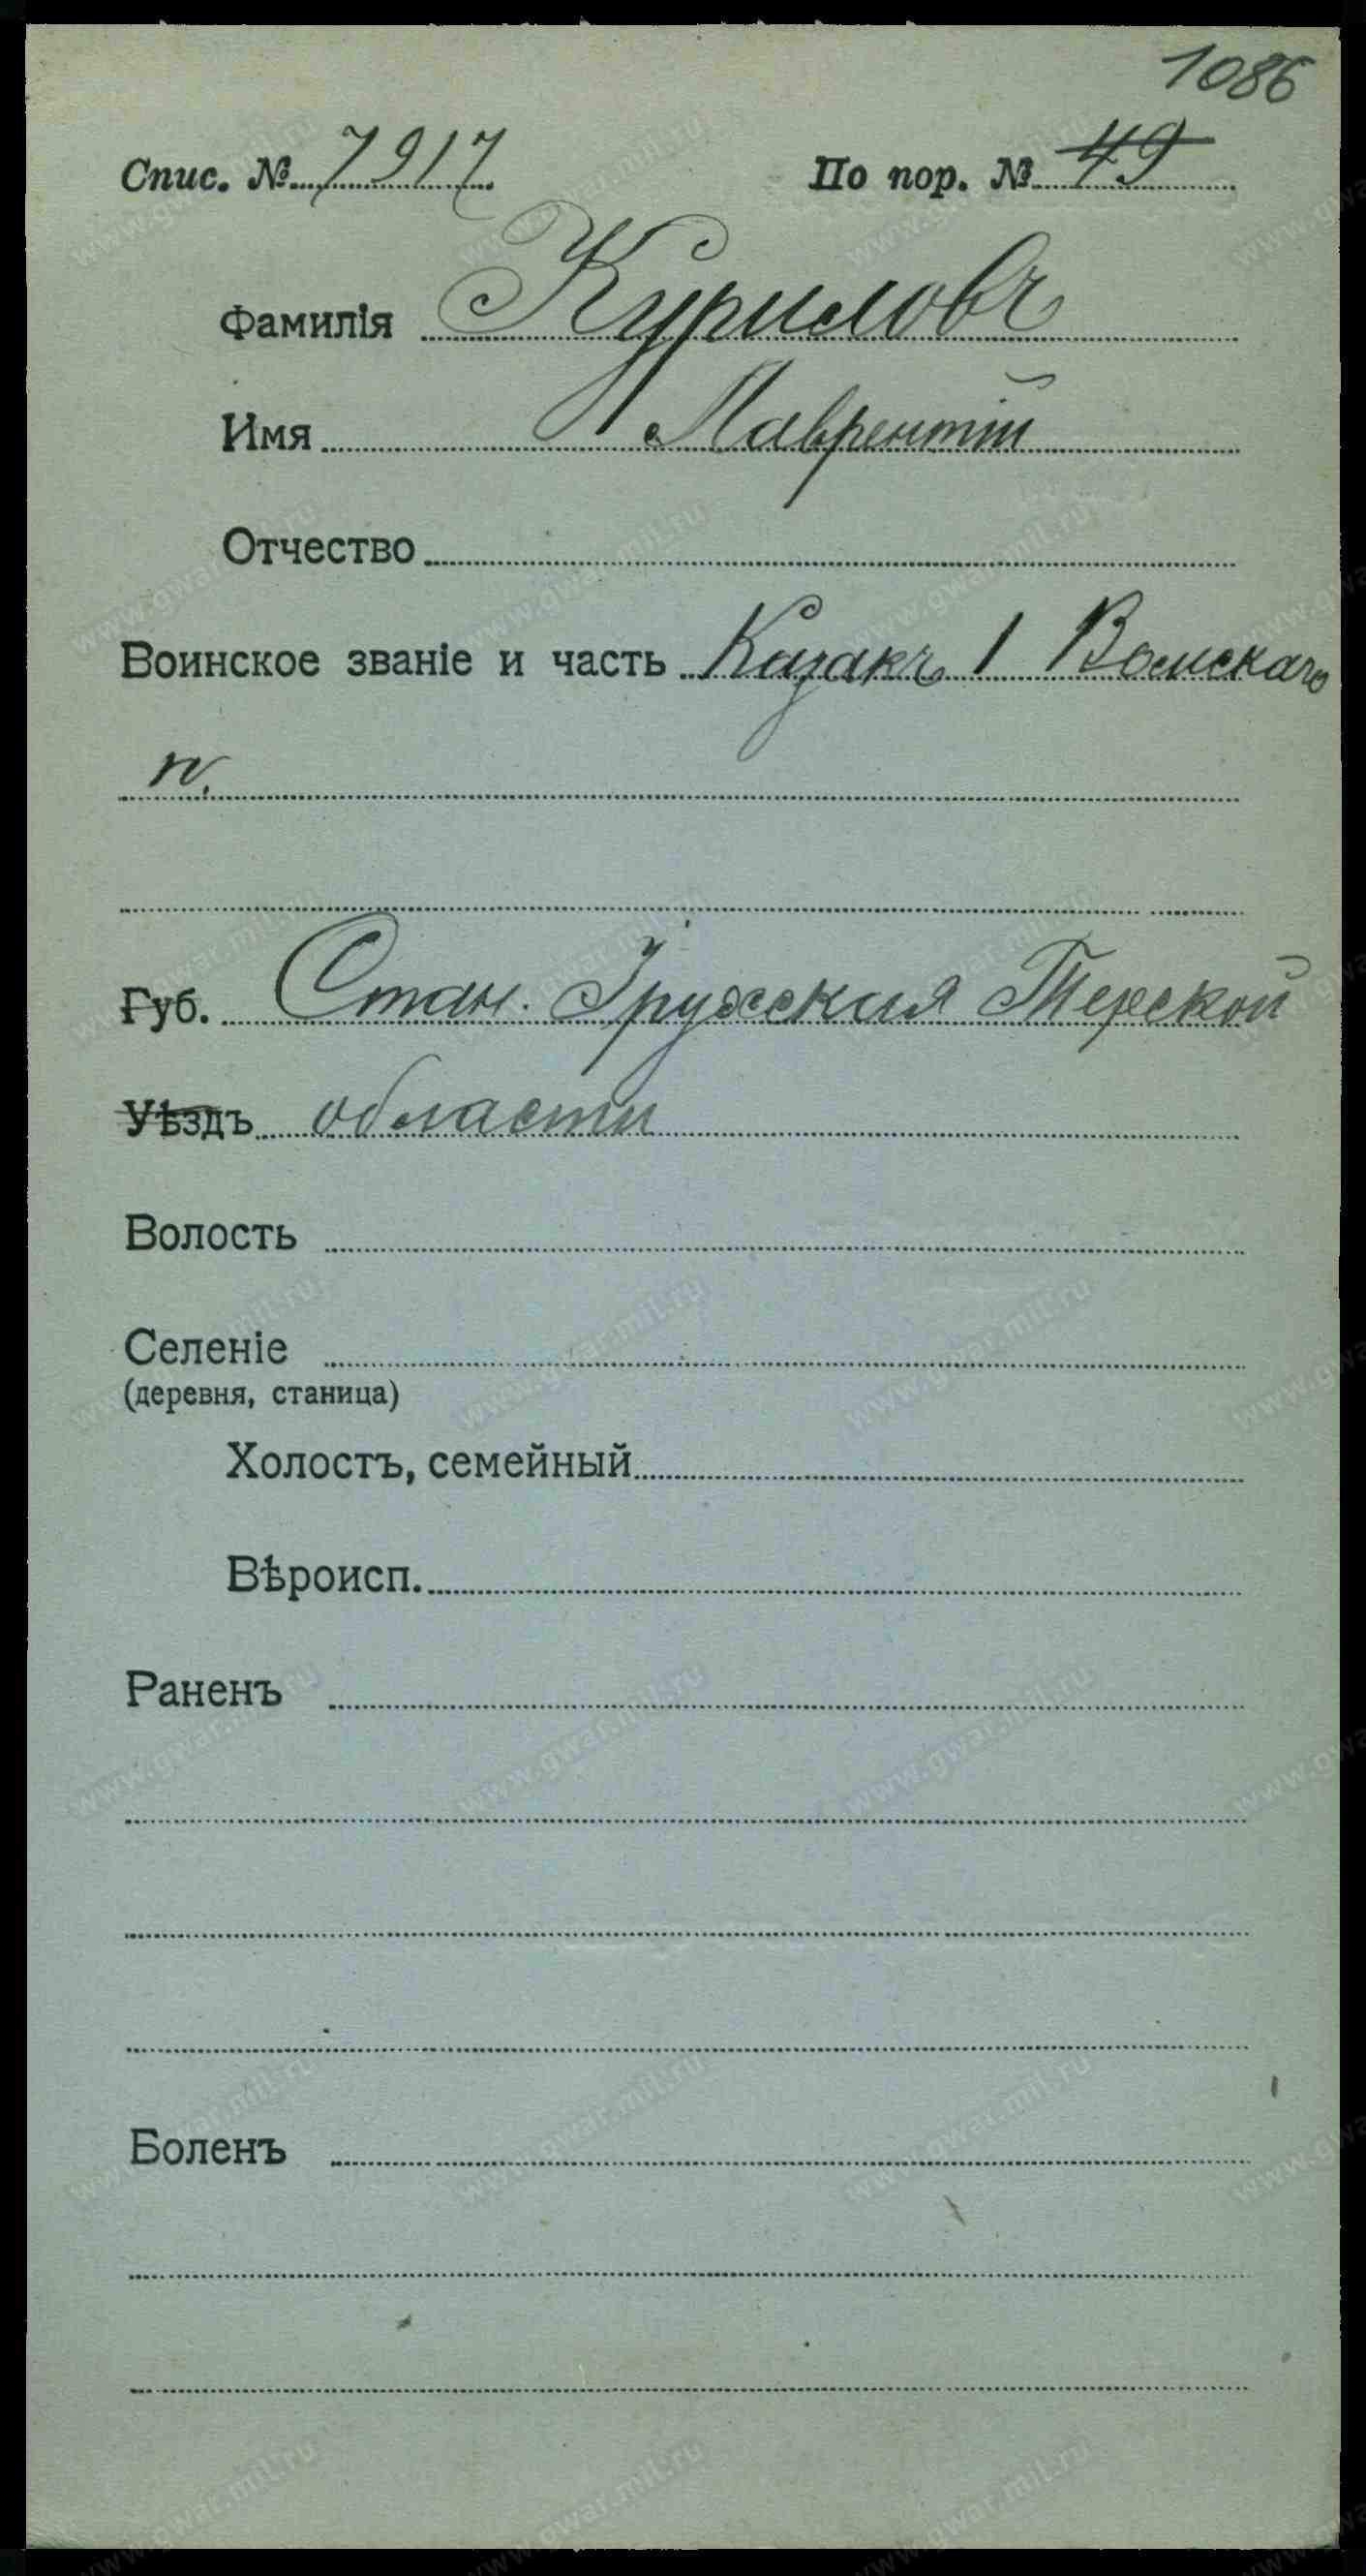 1086
Спис. № 7917 По пор. № 49
Фамилія Куриловъ
Имя Лаврентій
Отчество
Воинское званіе и часть Казакъ 1 Волгскаго
п.
Губ. Стан. Урухская Терской
Уѣздъ области
Волость
Селеніе
(деревня, станица)
Холостъ, семейный
Вѣроисп.
Раненъ
Боленъ
www.gwar.mil.ru